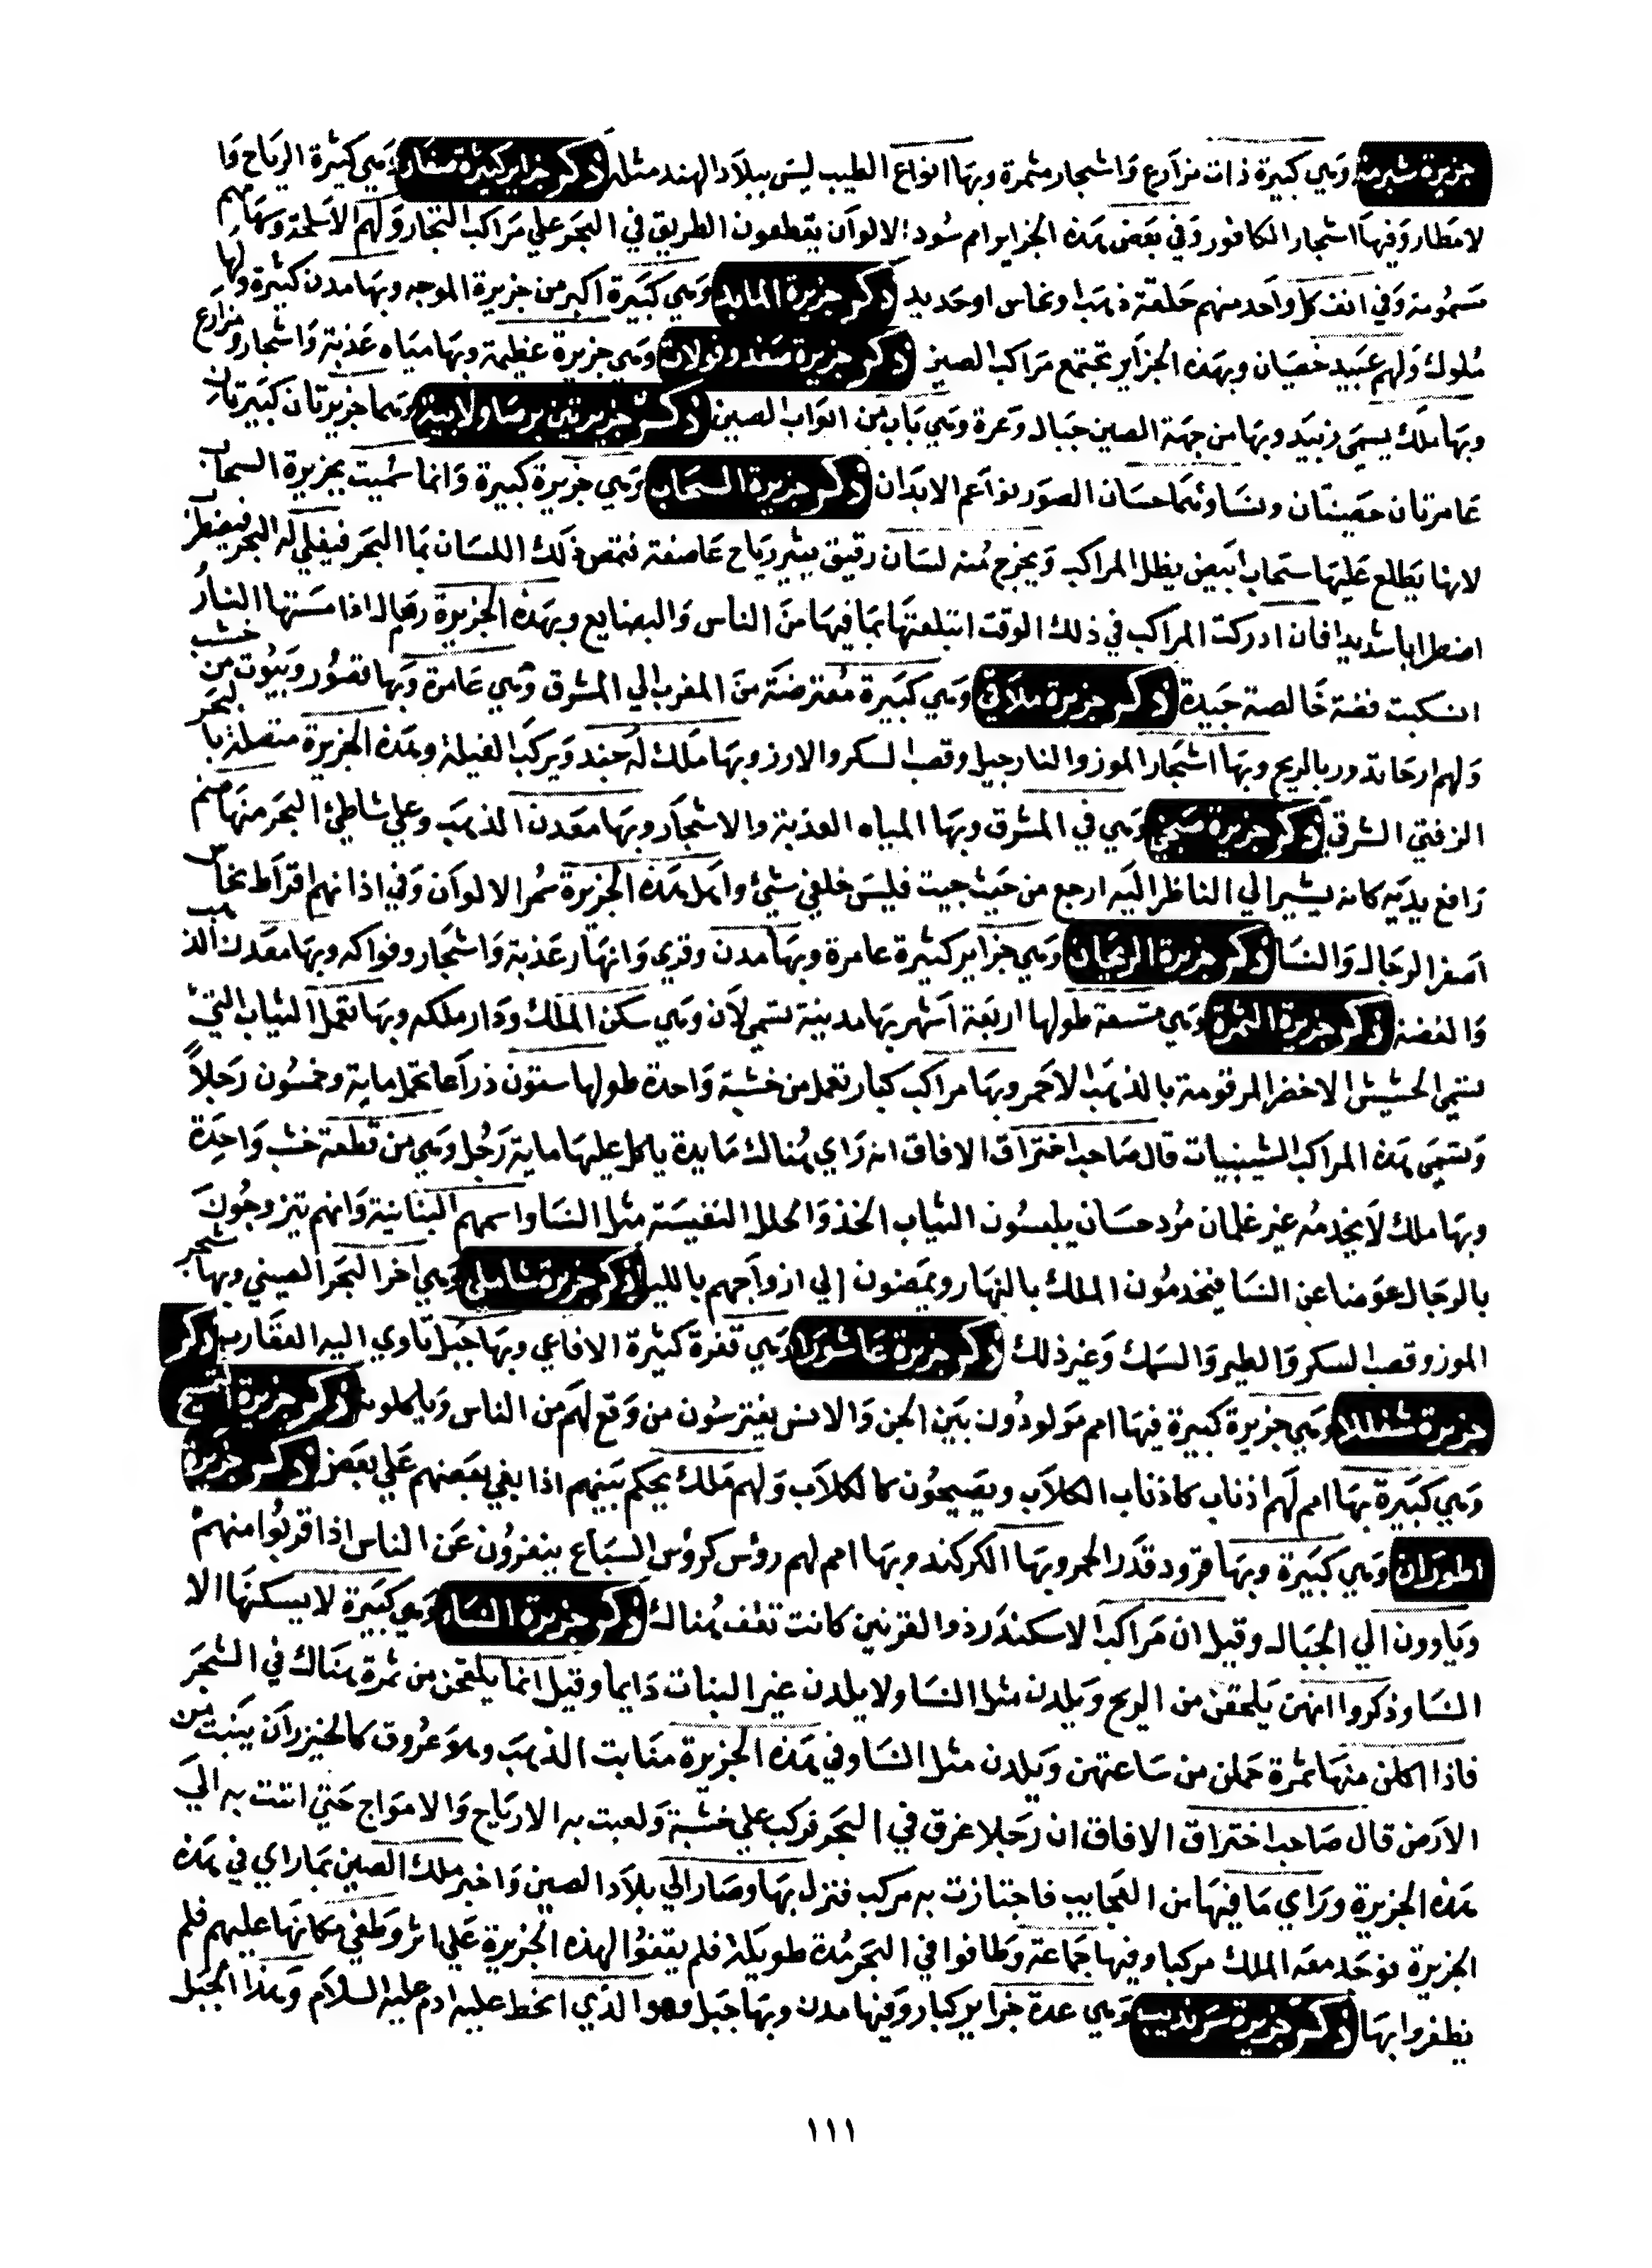 جزيرة شبرمة وهي كبيرة ذات مزارع واشجار مثمرة وبها انواع الطيب ليس ببلاد الهند مثله ذكر جزاير كثيرة وهي كثيرة الرياح وا
لامطار وفيها اشجار الكافور وفي بعض هذه الجزاير امم سود الالوان يقطعون الطريق في البحر علي مراكب التجار ولهم الاسلحة وسهامهم
مسمومة وفي انف كل واحد منهم حلقة ذهب او نحاس او حديد ذكر جزيرة المايد وهي كبيرة اكبر من جزيرة الموجه وبها مدن كثيرة ولها
ملوك ولهم عبيد خصيان وبهذه الجزاير تجتمع مراكب الصين ذكر جزيرة صغد وفولات وهي جزيرة عظيمة وبها مياه عذبة واشجار ومزارع
وبها ملك يسمي زنبيد وبها من جهة الصين جبال وعرة وهي باب من ابواب الصين ذكر جزيرتين برسا ولابية وهما جزيرتان كبيرتان
عامرتان حصينتان ونساوهما حسان الصور نواعم الابدان ذكر جزيرة السحاب وهي جزيرة كبيرة وانما سميت بجزيرة السحاب
لانها يطلع عليها سحاب ابيض يظل المراكب ويخرج منه لسان رقيق يثير رياح عاصفة فيمص ذلك اللسان بما البحر فيغلي له البحر فيضطرب
اضطرابا شديدا فان ادركت المراكب في ذلك الوقت ابتلعتها بما فيها من الناس والبضايع وبهذه الجزيرة رمال اذا مستها النار
انسكبت فضة خالصة جيدة ذكر جزيرة ملاي وهي كبيرة معترضة من المغرب الي المشرق وهي عامرة وبها قصور وبيوت من خشب
ولهم ارحا تدور بالريح وبها اشجار الموز والنارجيل وقصب السكر والارز وبها ملك له جند ويركب الفيلة وهذه الجزيرة متصلة بالبحر
الزفتي الشرقي ذكر جزيرة صبح وهي في المشرق وبها المياه العذبة والاشجار وبها معدن الذهب وعلي شاطئ البحر منها صنم
رافع يديه كانه يشير الي الناظر اليه ارجع من حيث جيت فليس خلفي شئ واهل هذه الجزيرة سمر الالوان وفي اذانهم اقراط نحاس
اصفر الرجال والنسا ذكر جزيرة الريحان وهي جزاير كثيرة عامرة وبها مدن وقري وانهار عذبة واشجار وفواكه وبها معدن الذهب
والفضة ذكر جزيرة وهي متسعة طولها اربعة اشهر بها مدينة تسمي لان وهي سكن الملك ودار ملكه وبها تعمل الثياب التي
تسمي الحشيش الاخضر المرقومة بالذهب الاحمر وبها مراكب كبار تعمل من خشبة واحدة طولها ستون ذراعا تحمل ماية وخمسون رجلا
وتسمي هذه المراكب الشينيات قال صاحب اختراق الافاق انه راي هناك مايدة ياكل عليها ماية رجل وهي من قطعة خشب واحدة
وبها ملك لا يخدمه غير غلمان مرد حسان يلبسون الثياب الخز والحلل النفيسة مثل النسا واسمهم البنانية وانهم تتزوجون
بالرجال عوضا عن النسا فيخدمون الملك بالنهار ويمضون الي ازواجهم بالليل ذكر جزيرة شاملي وهي اخر البحر الصيني وبها شجر
الموز وقصب السكر والطير والسمك وغير ذلك ذكر جزيرة عاشورا وهي قفرة كثيرة الافاعي وبها جبل تاوي اليه العقارب ذكر
جزيرة شغللا وهي جزيرة كبيرة فيها امم مولودون بين الجن والانس يفترسون من وقع لهم من الناس وياكلونه ذكر جزيرة
وهي كبيرة بها امم لهم اذناب كاذناب الكلاب ويصيحون كالكلاب ولهم ملك يحكم بينهم اذا بغي بعضهم علي بعض ذكر جزيرة
اطوران وهي كبيرة وبها قرود قدر الحمر وبها الكركند وبها امم لهم رؤس كروس السباع ينفرون عن الناس اذا قربوا منهم
وياوون الي الجبال وقيل ان مراكب الاسكندر ذو القرنين كانت تقف هناك ذكر جزيرة النساء وهي كبيرة لا يسكنها الا
النسا وذكروا انهن يلحقن من الريح ويلدن مثل النسا ولا يلدن غير البنات دايما وقيل انما يلقحن من ثمرة هناك في الشجر
فاذا اكلن منها ثمرة حملن من ساعتهن ويلدن مثل النسا وفي هذه الجزيرة منابت الذهب وله عروق كالخيزران ينبت من
الارض قال صاحب اختراق الافاق ان رجلا غرق في البحر فركب علي خشبة ولعبت به الارياح والامواج حتي انتت به الي
هذه الجزيرة وراي ما فيها من العجايب فاجتازت به مركب فنزل بها وصار الي بلاد الصين واخبر ملك الصين بما راي في هذه
الجزيرة فوجد معه الملك مركبا وفيها جماعة وطافوا في البحر مدة طويلة فلم يقفوا لهذه الجزيرة علي اثر وطفي مكانها عليهم فلم
يظفروا بها ذكر جزيرة سرنديب وهي عدة جزاير كبار وفيها مدن وبها جبل وهو الذي انحط عليه ادم عليه السلام وهذا الجبل
١١١